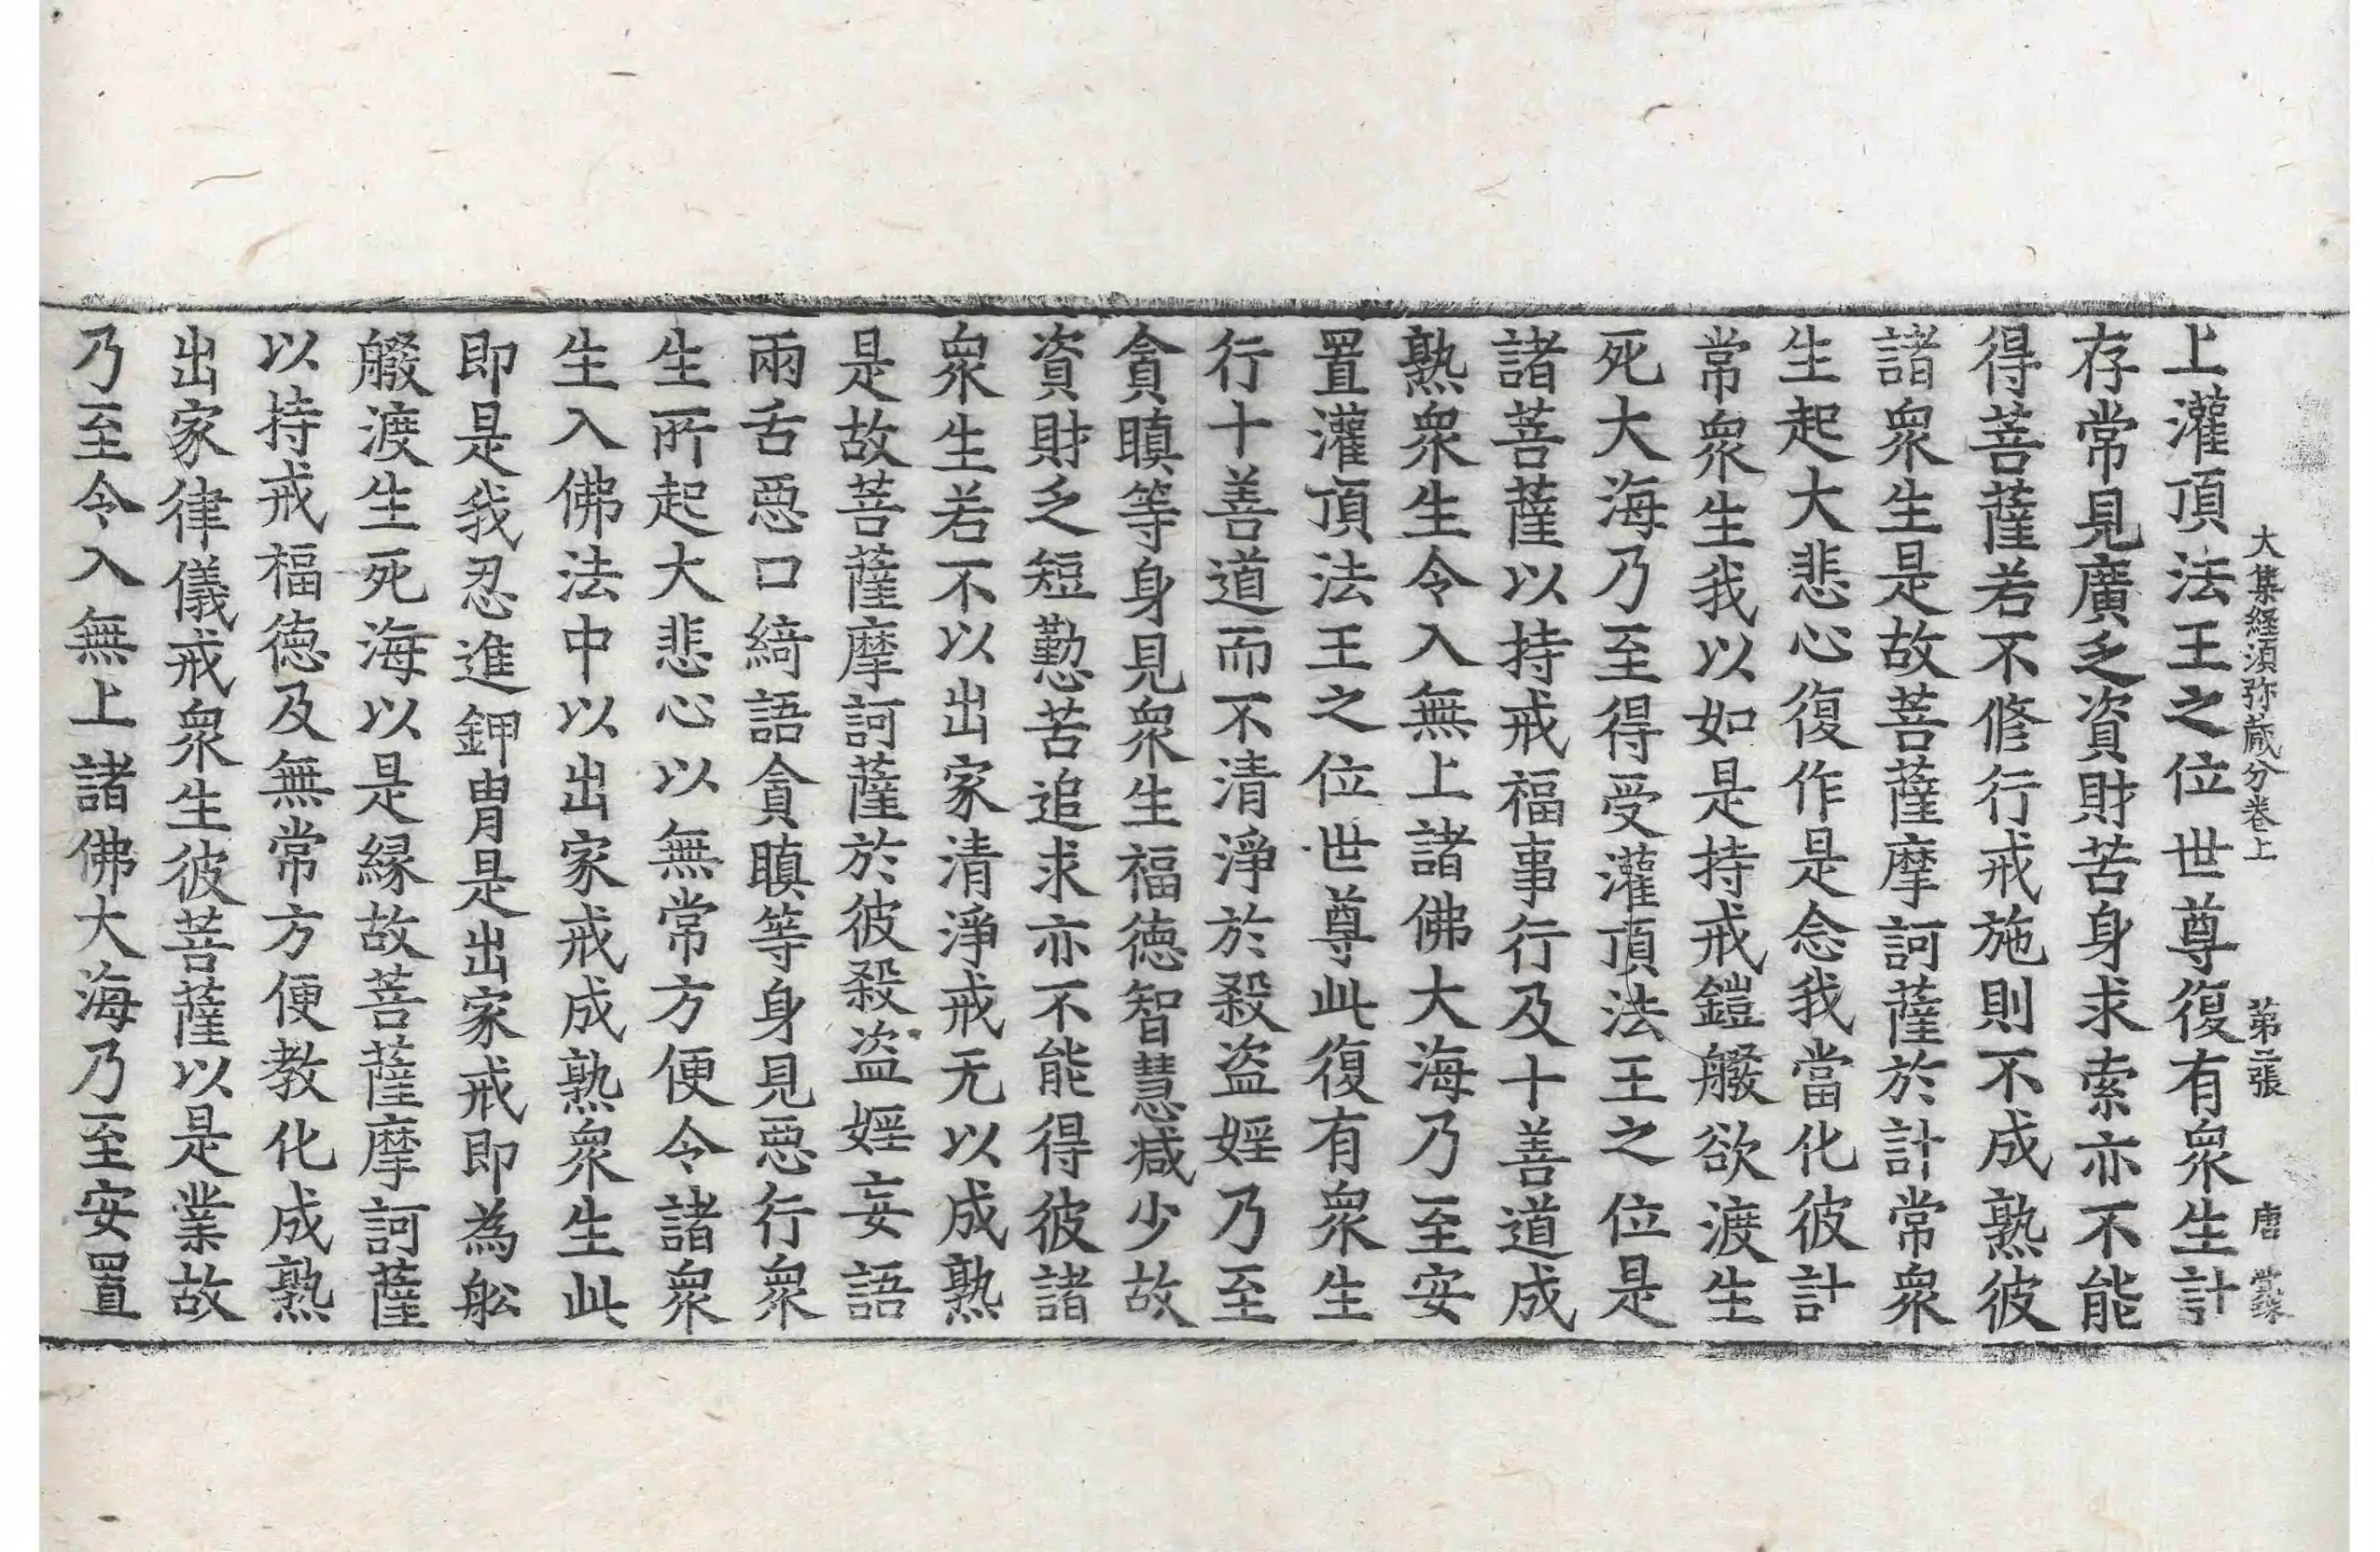 大集経湏弥蔵分卷上 第二張 唐
上灌頂法王之位世尊復有衆生計
存常見廣乏資財苦身求索亦不能
得菩薩若不修行戒施則不成熟彼
諸衆生是故菩薩摩訶薩於計常衆
生起大悲心復作是念我當化彼計
常衆生我以如是持戒鎧艥欲渡生
死大海乃至得受灌頂法王之位是
諸菩薩以持戒福事行及十善道成
熟衆生令入無上諸佛大海乃至安
置灌頂法王之位世尊此復有衆生
行十善道而不清淨於殺盜婬乃至
貪瞋等身見衆生福德智慧減少故
資財乏短勤苦追求亦不能得彼諸
衆生若不以出家清淨戒无以成熟
是故菩薩摩訶薩於彼殺盜婬妄語
兩舌惡口綺語貪瞋等身見惡行衆
生所起大悲心以無常方便令諸衆
生入佛法中以出家戒成熟衆生此
即是我忍進鉀冑是出家戒即為舩
艥渡生死海以是縁故菩薩摩訶薩
以持戒福徳及無常方便教化成熟
出家律儀戒衆生彼菩薩以是業故
乃至令入無上諸佛大海乃至安置